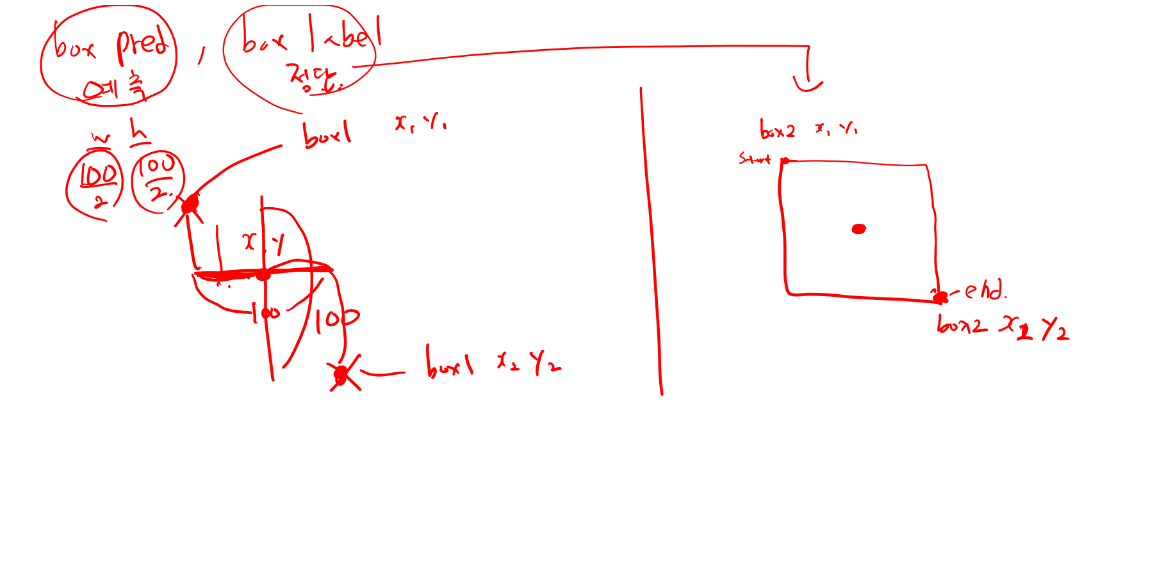 box pred , box label
예측 정답.
w h
100/2 100/2.
box1 x1 y1
x, y
100
100
box1 x2 y2
box2 x1 y1
Start
end.
box2 x2 y2